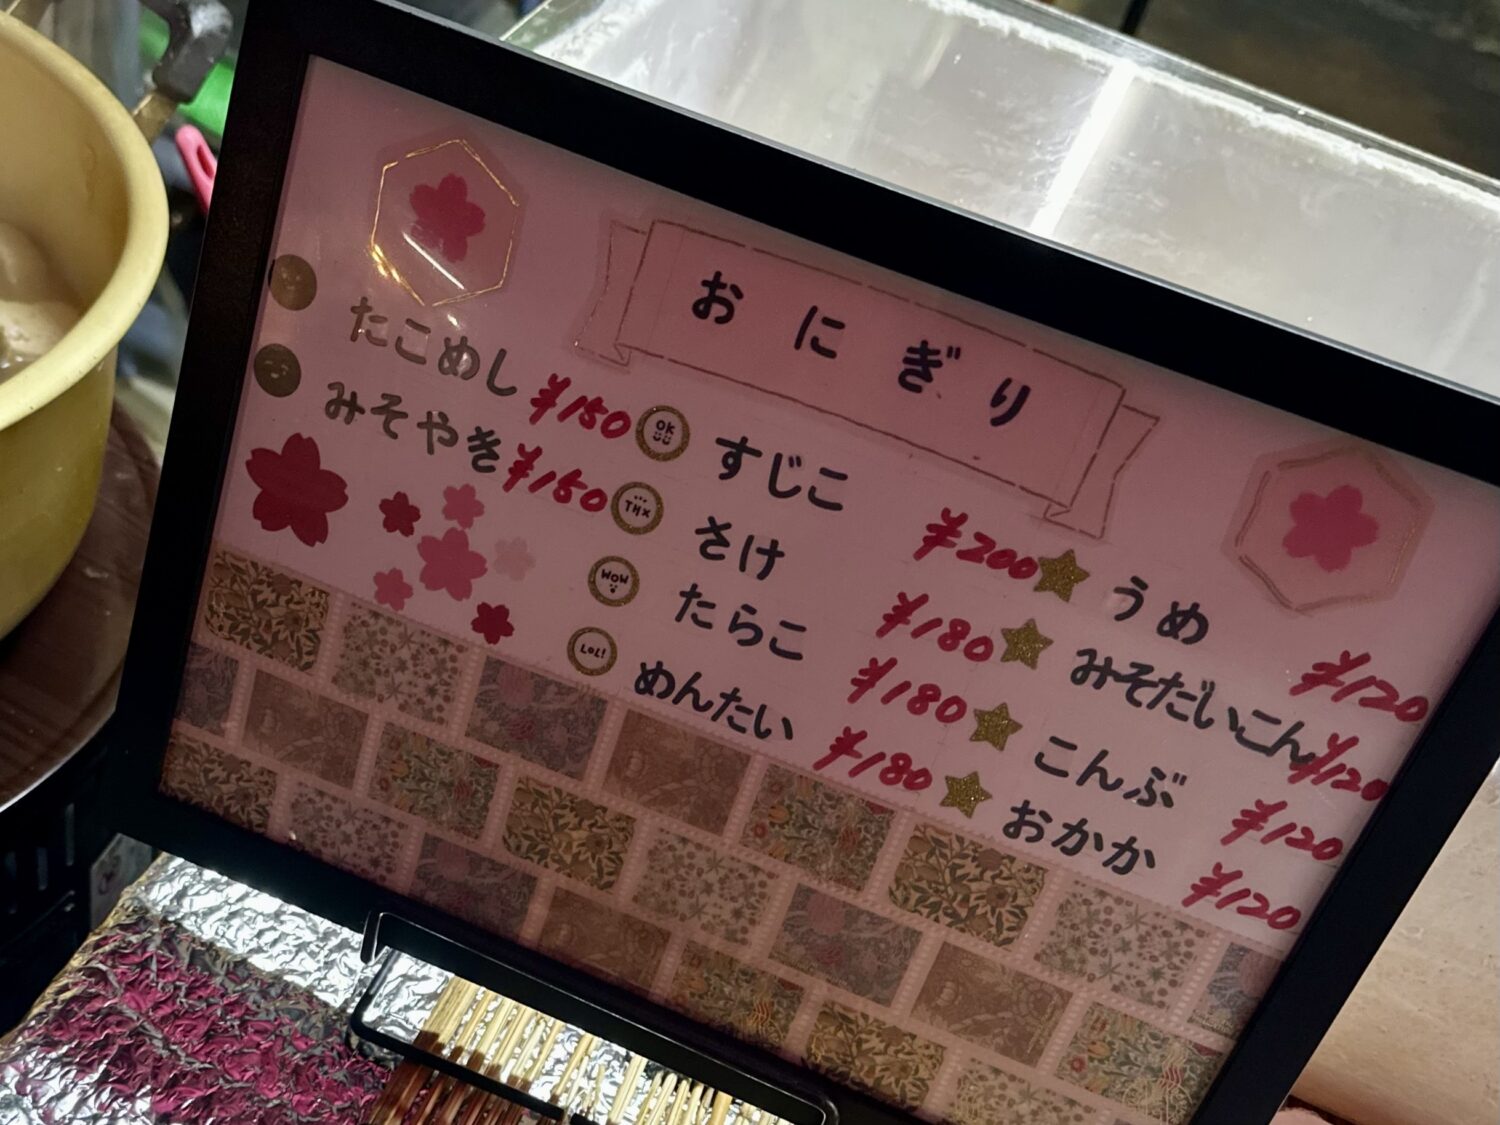 おにぎり
たこめし ¥150
みそやき ¥150
OK すじこ ¥200
THX さけ ¥180
WOW たらこ ¥180
LOL! めんたい ¥180
うめ ¥120
みそだいこん ¥120
こんぶ ¥120
おかか ¥120